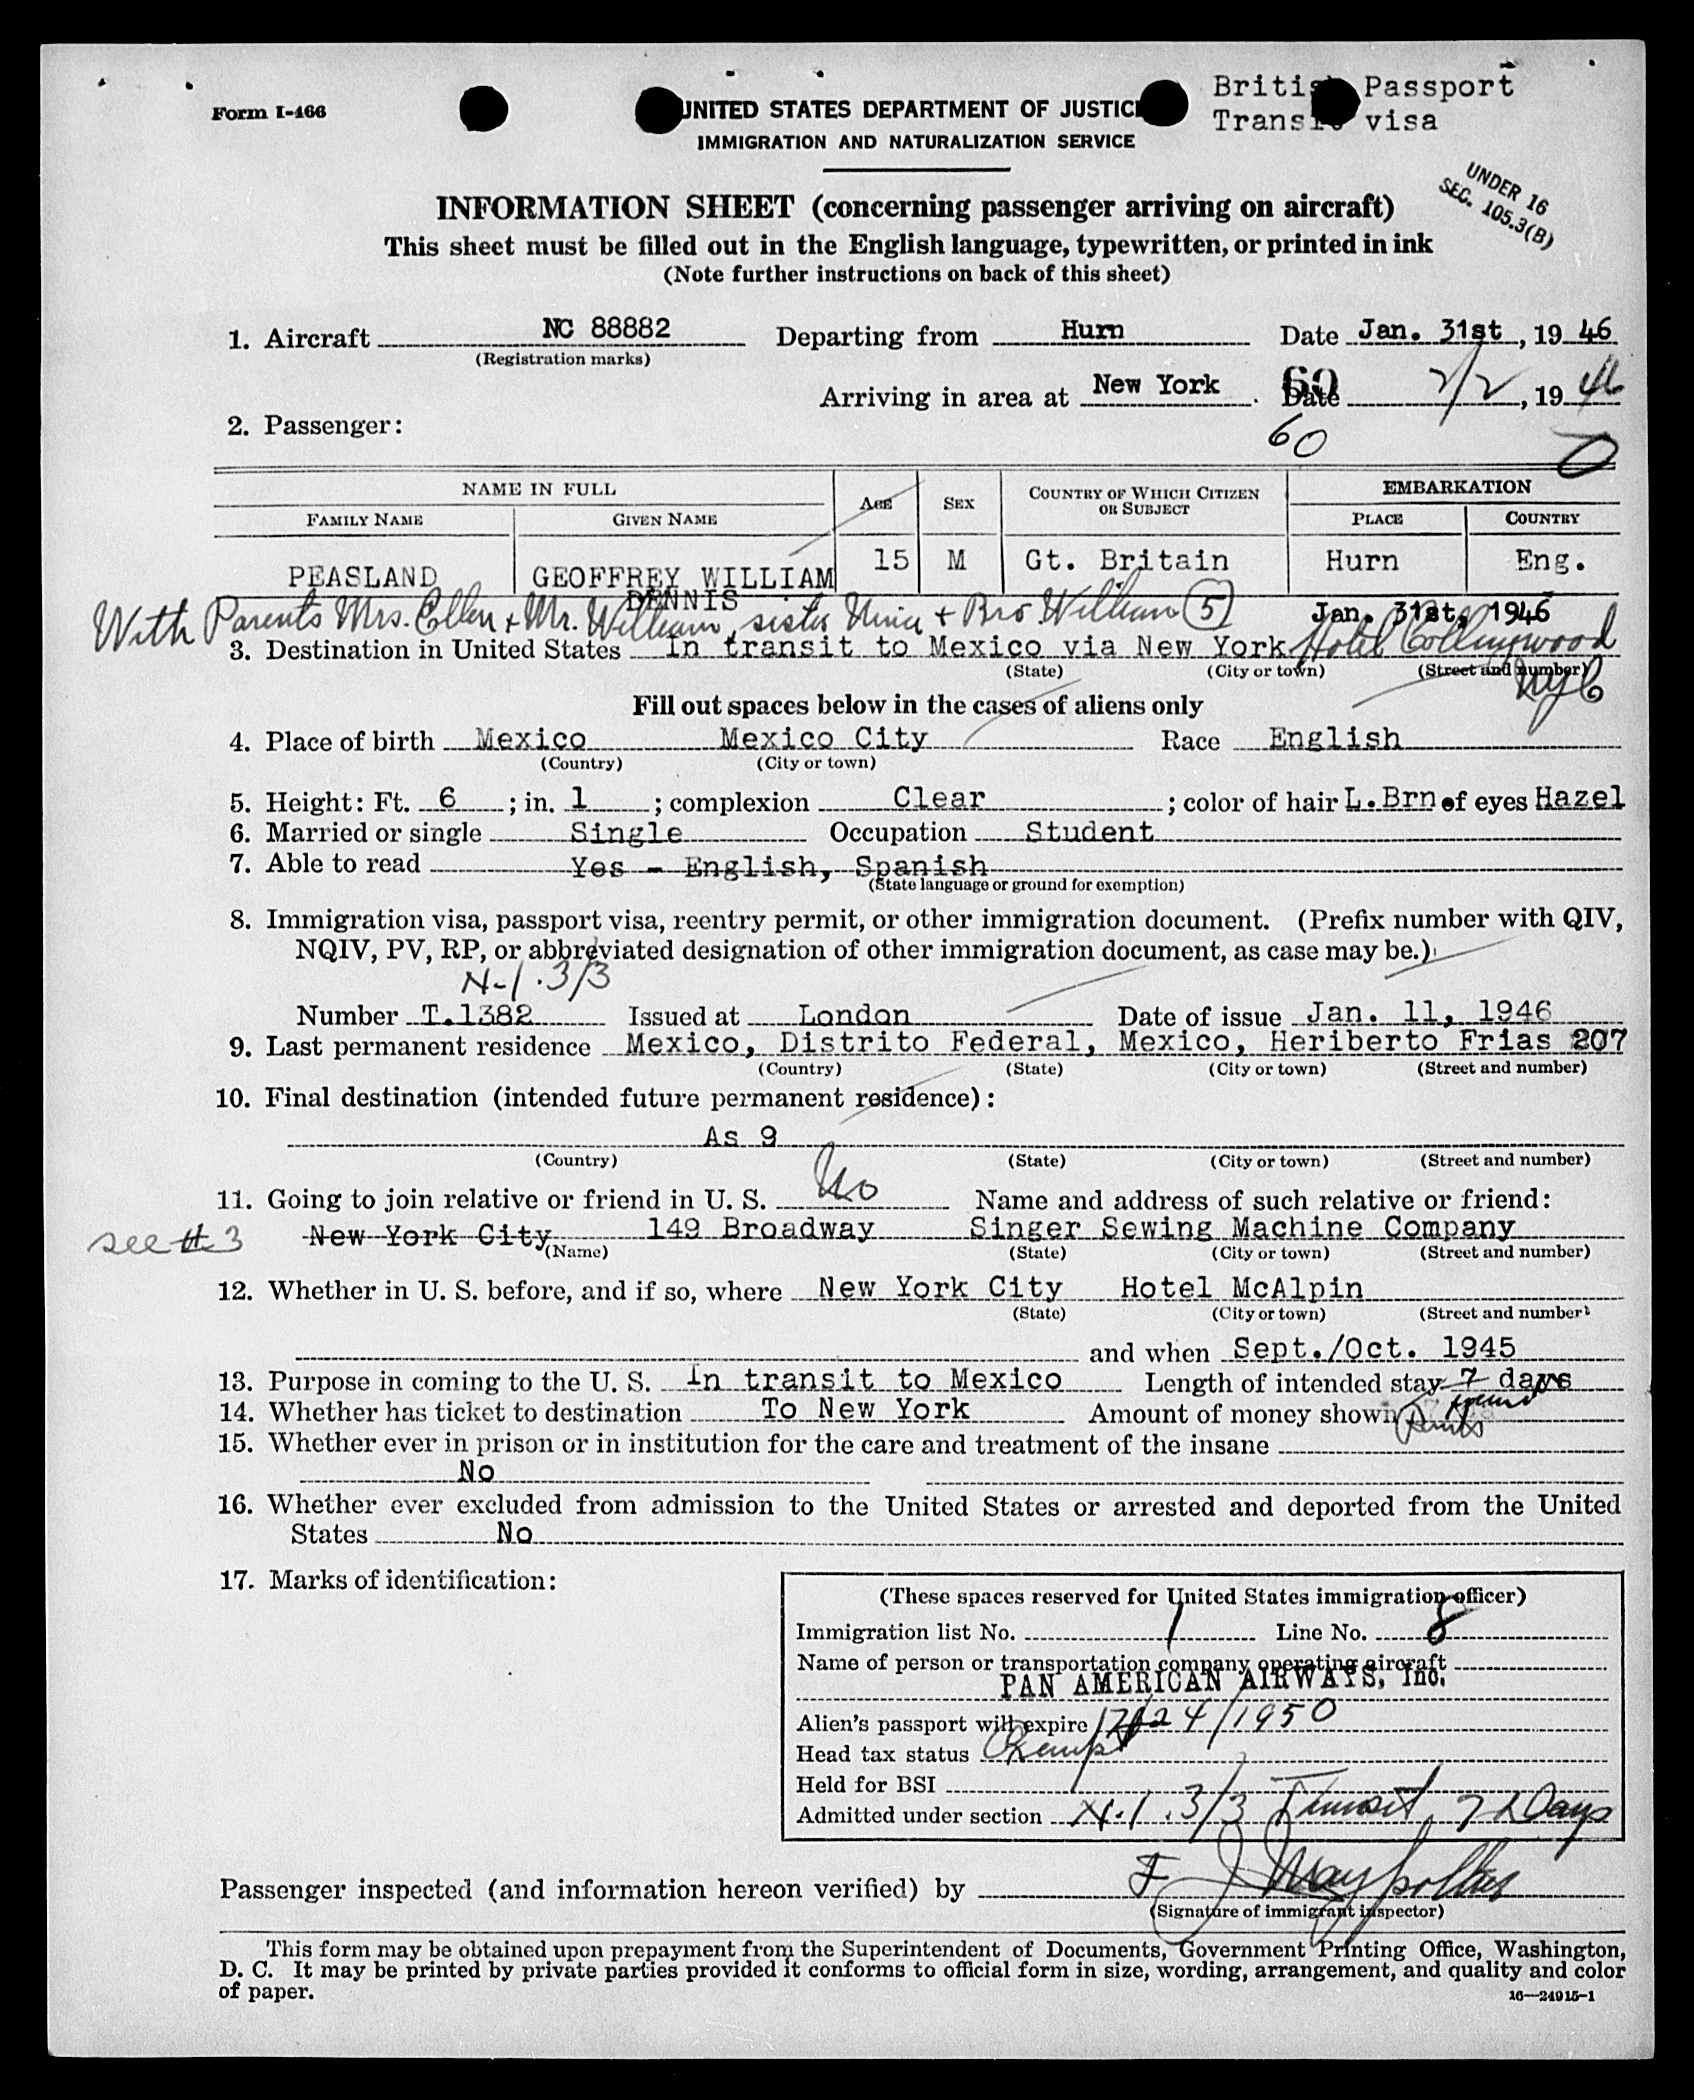 Form I-466
UNITED STATES DEPARTMENT OF JUSTICE
IMMIGRATION AND NATURALIZATION SERVICE
British Passport
Transit visa
UNDER 16
SEC. 105.3(B)
INFORMATION SHEET (concerning passenger arriving on aircraft)
This sheet must be filled out in the English language, typewritten, or printed in ink
(Note further instructions on back of this sheet)
1. Aircraft NC 88882 Departing from Hurn Date Jan. 31st, 19 46
(Registration marks)
Arriving in area at New York. Date 2/2, 19 46
60
60
2. Passenger:
NAME IN FULL AGE SEX COUNTRY OF WHICH CITIZEN OR SUBJECT EMBARKATION
FAMILY NAME GIVEN NAME PLACE COUNTRY
PEASLAND GEOFFREY WILLIAM 15 M Gt. Britain Hurn Eng.
DENNIS
With Parents Mrs. Ellen + Mr. William, sister + Bro William (5) Jan. 31st, 1946
3. Destination in United States in transit to Mexico via New York Hotel Collingwood
(State) (City or town) (Street and number)
NYC
Fill out spaces below in the cases of aliens only
4. Place of birth Mexico Mexico City Race English
(Country) (City or town)
5. Height: Ft. 6; in. 1; complexion Clear; color of hair L.Brn of eyes Hazel
6. Married or single Single Occupation Student
7. Able to read Yes - English, Spanish
(State language or ground for exemption)
8. Immigration visa, passport visa, reentry permit, or other immigration document. (Prefix number with QIV,
NQIV, PV, RP, or abbreviated designation of other immigration document, as case may be.)
N-1.3/3
Number T.1382 Issued at London Date of issue Jan. 11, 1946
9. Last permanent residence Mexico, Distrito Federal, Mexico, Heriberto Frias 207
(Country) (State) (City or town) (Street and number)
10. Final destination (intended future permanent residence):
As 9
(Country) (State) (City or town) (Street and number)
11. Going to join relative or friend in U. S. No Name and address of such relative or friend:
see #3 New York City 149 Broadway Singer Sewing Machine Company
(Name) (State) (City or town) (Street and number)
12. Whether in U. S. before, and if so, where New York City Hotel McAlpin
(State) (City or town) (Street and number)
and when Sept./Oct. 1945
13. Purpose in coming to the U. S. In transit to Mexico Length of intended stay 7 days
14. Whether has ticket to destination To New York Amount of money shown
15. Whether ever in prison or in institution for the care and treatment of the insane
No
16. Whether ever excluded from admission to the United States or arrested and deported from the United
States No
17. Marks of identification:
(These spaces reserved for United States immigration officer)
Immigration list No. 1 Line No. 8
Name of person or transportation company operating aircraft
PAN AMERICAN AIRWAYS, Inc.
Alien's passport will expire 12/24/1950
Head tax status Exempt
Held for BSI
Admitted under section N-1.3/3 Transit 7 Days
Passenger inspected (and information hereon verified) by
(Signature of immigrant inspector)
This form may be obtained upon prepayment from the Superintendent of Documents, Government Printing Office, Washington,
D. C. It may be printed by private parties provided it conforms to official form in size, wording, arrangement, and quality and color
of paper.
16—24915-1